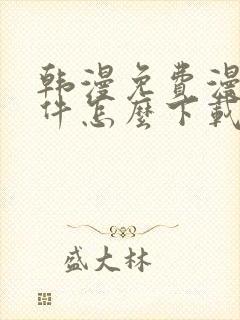 韩漫免费漫
件怎麼下載
盛大林